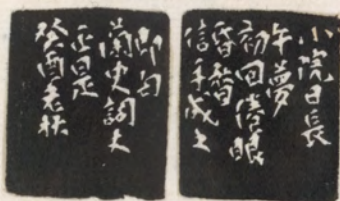 小院日長
午夢
初回倦眼
昏瞀
信手成之
即自
蘭史詞丈
正是
癸酉老秋